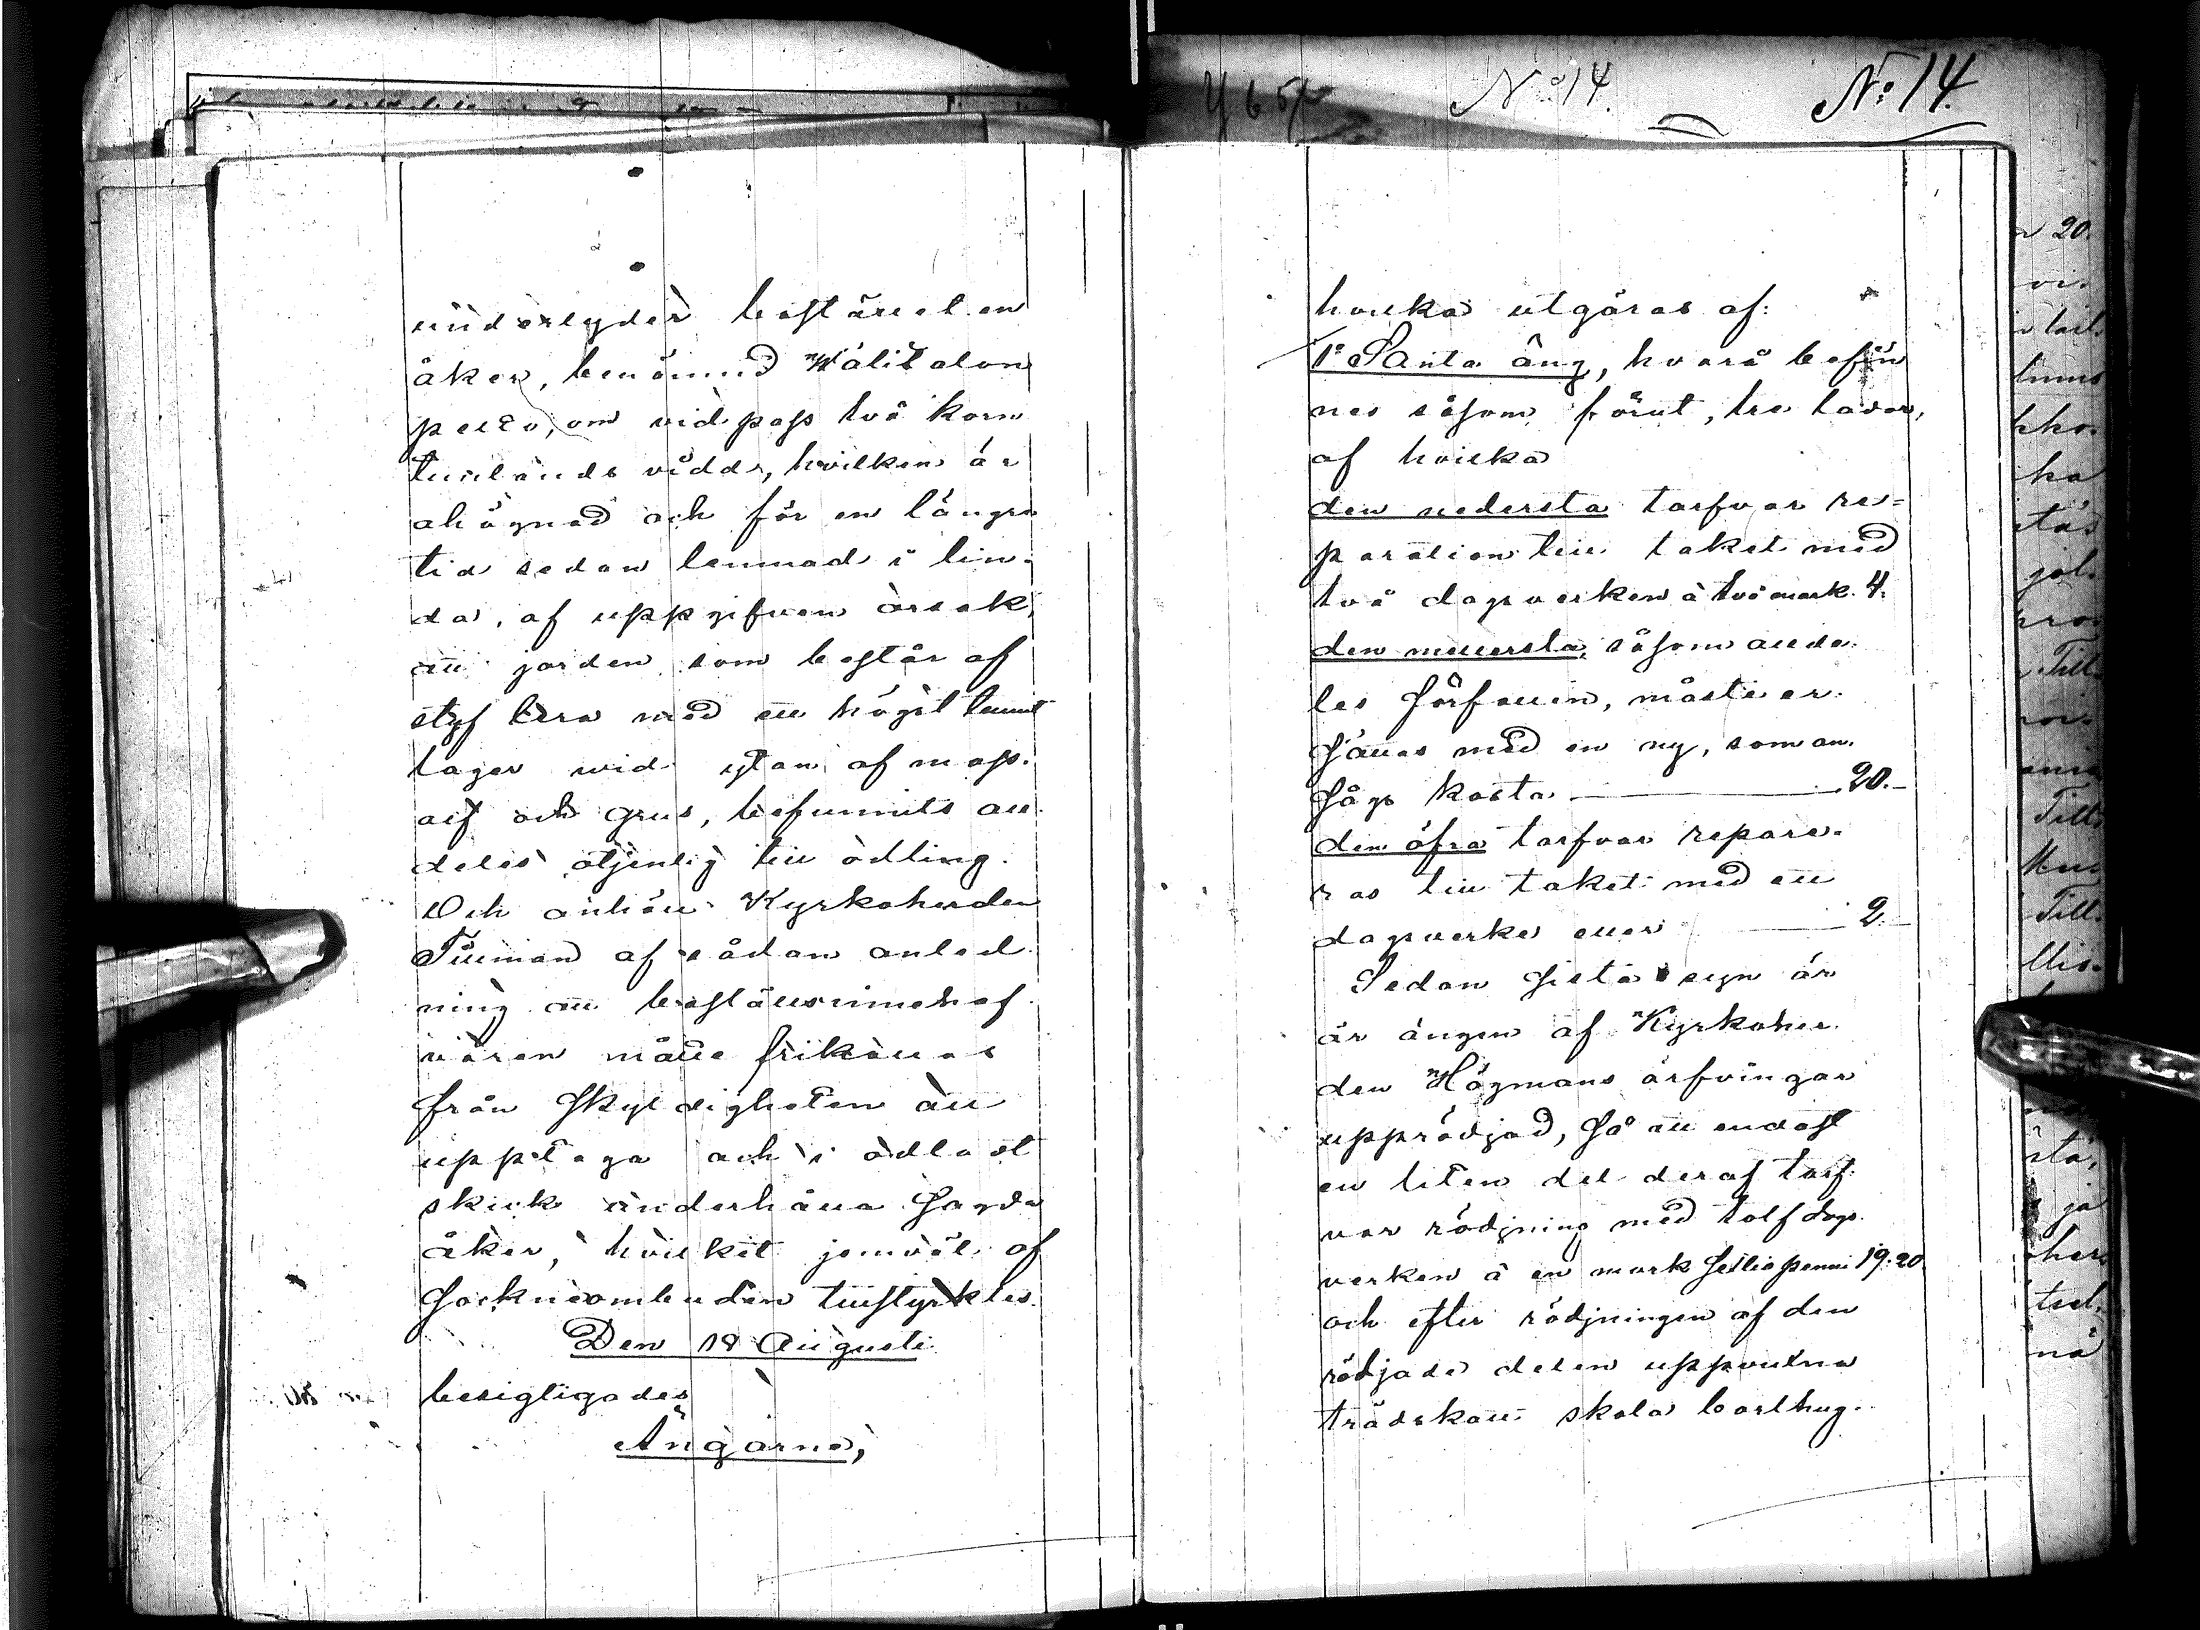 No 14. No 14.
underlyder bostället en
åker, benämnd Wälitalon
pelto, om vid pass två korn
tunlands vidd, hvilken är
ohägnad och för en längre
tid sedan lemnad i lin-
da, af uppgifven orsak,
att jorden som består af
styf lera med ett högst tunnt
lager wid ytan af moss-
alf och grus, befunnits all-
deles otjenlig till odling.
Och anhöll Kyrkoherden
Tilman af sådan anled-
ning att boställsinnehaf-
varen måtte frikallas
från skyldigheten att
upptaga och i odladt
skick underhålla sagda
åker, hvilket jemväl af
Sockneombuden tillstyrktes.
Den 18 Augusti
besigtigades
Ängarne,
hvilka utgöras af:
1o Santa äng, hvarå befin-
nes såsom förut, tre lador,
af hvilka
den nedersta tarfvar re-
paration till taket med
två dagsverken à två mark. 4.
den mellersta, såsom allde-
les förfallen, måste er-
sättas med en ny, som an-
sågs kosta 20.-
den öfra tarfvar repare-
ras till taket med ett
dagsverke eller 2.-
Sedan sista syn är
är ängen af Kyrkoher-
den Högmans arfvingar
upprödjad, så att endast
en liten del deraf tarf-
var rödjning med tolf dags-
verken à en mark sextio penni 19:20
och efter rödjningen af den
rödjade delen uppvuxna
trädskott skola borthug-